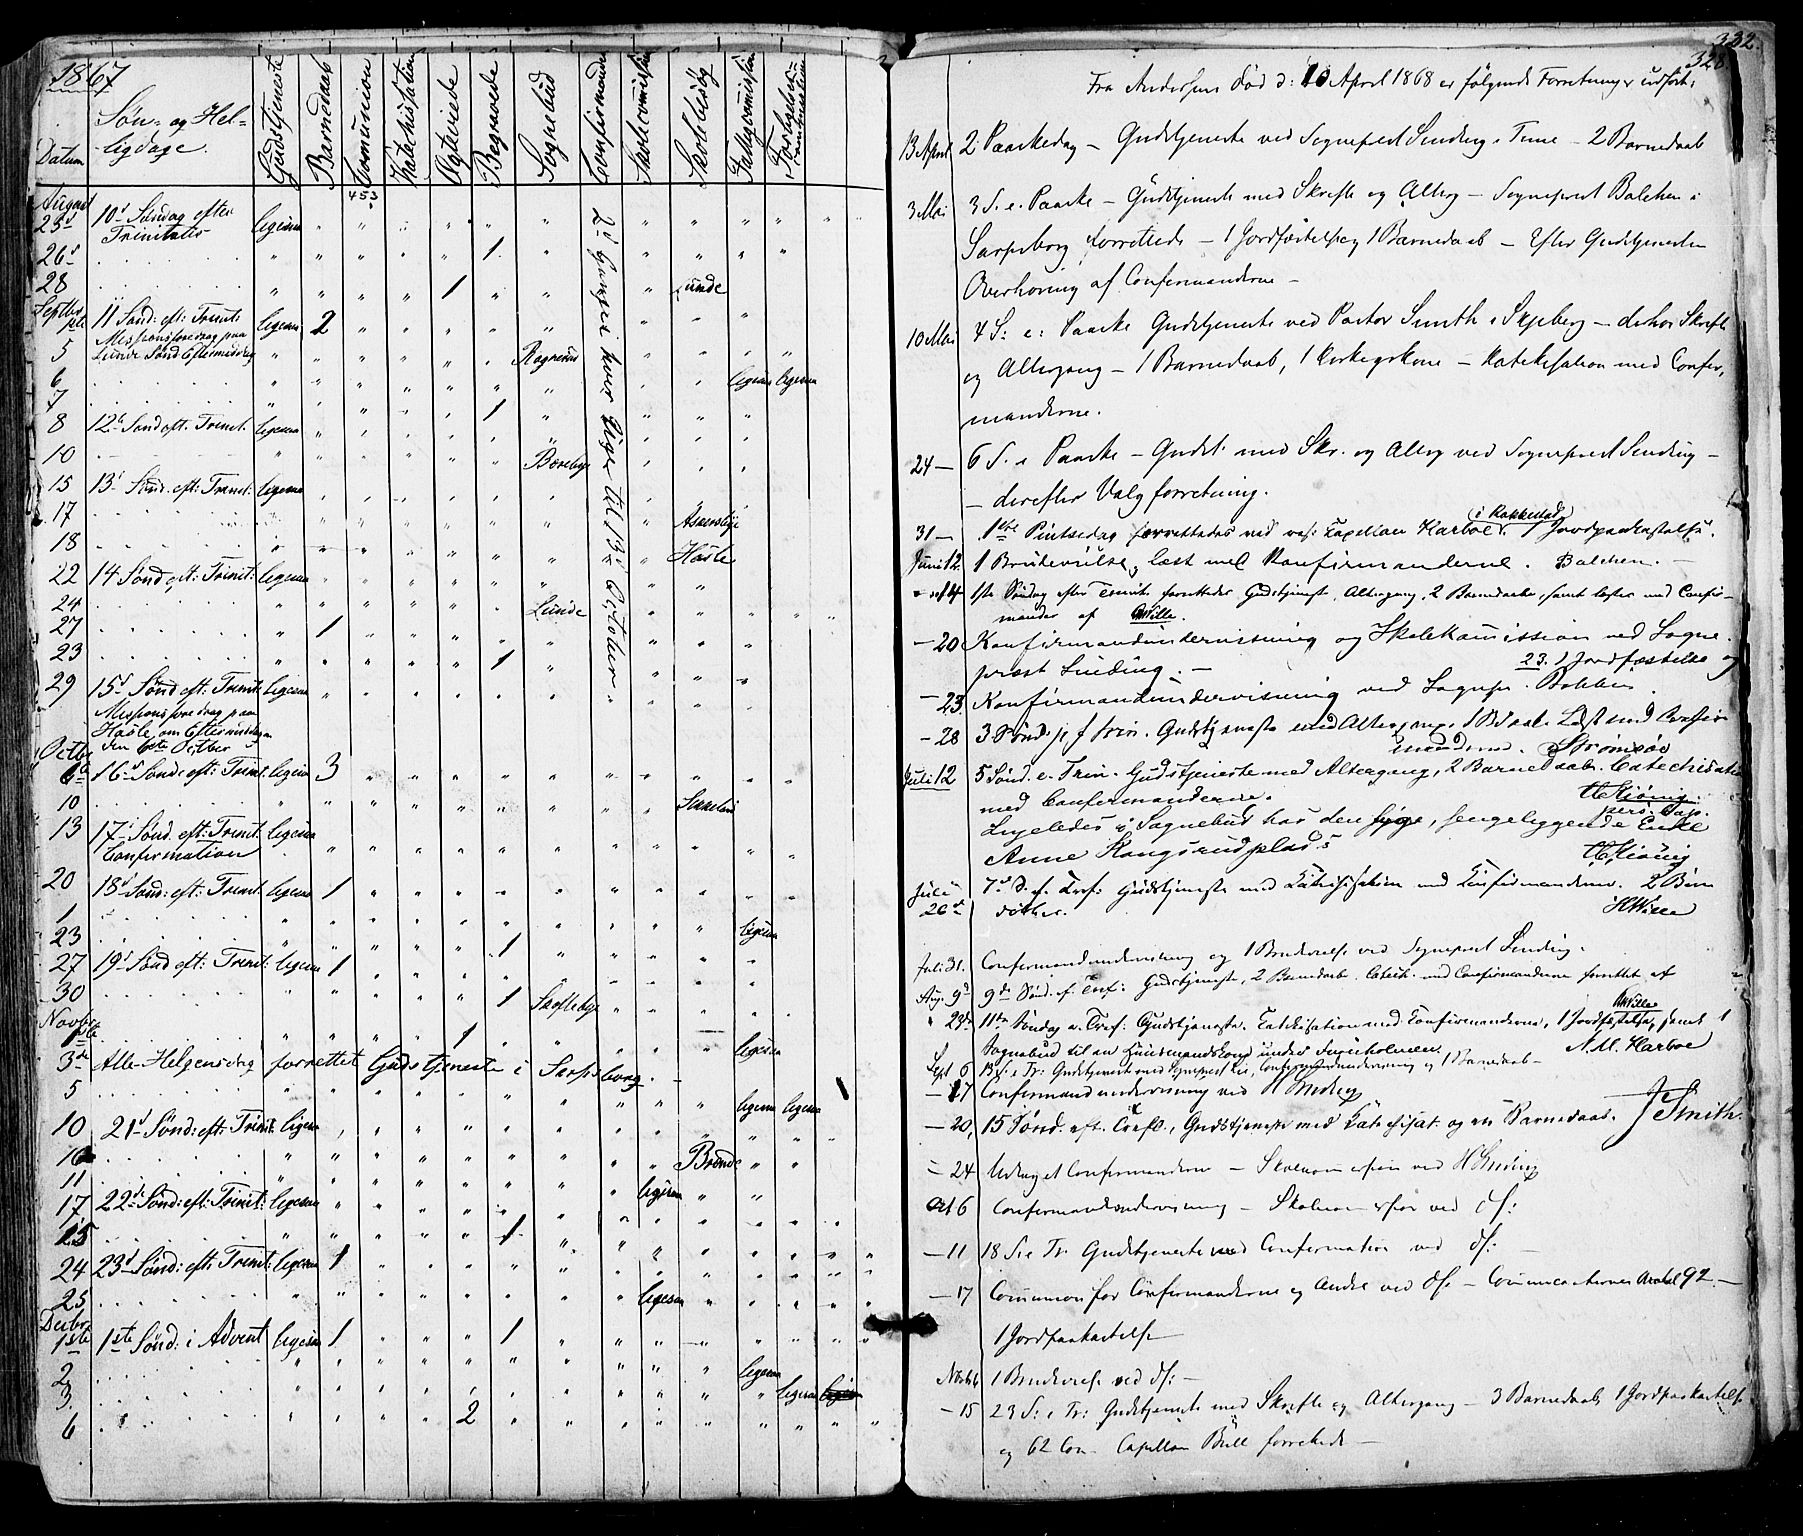 1867
Søn- og Hel-
ligdage.
Datum
Gudstjeneste
Barnedaab
Comunion
Katekisation
Ægteviede
Begravede
Sognebud
Confirmander
Skolecomission
Skolebesøg
Fattigcomission
453
August
25d 10d Søndag efter ligesaa
Trinitatis
26d 1
28 1 Lunde
2d Gange hver Uge til 13d October.
Septbr
1ste 11 Sønd: eft: Trinit: ligesaa 2
Missionsforedrag paa
Lunde Sønd Eftermiddag
5 Ragnerud
6 ligesaa ligesaa
7 1
8 12te Sønd eft. Trinit. ligesaa
10 Boreby
15 13d Sønd. eft: Trinit: ligesaa
17
18 Hasle
22 14 Sønd eft: Trinit: ligesaa
24 Lunde
27 1
23 1
29 15d Sønd eft: Trinit: ligesaa
Missionsforedrag paa
Hasle om Eftermiddagen
den 6ste October
Octbr
6te 16d Sønd: eft: Trinit: ligesaa 3
10
13 17d Sønd. eft: Trinit: ligesaa
Confirmation
20 18d Sønd: eft: Trinit: ligesaa 1
1 ligesaa
23 1
27 19d Sønd eft: Trinit: ligesaa 1
30 1
Novbr
1ste 1 ligesaa
3de Alle Helgensdag forrettet Gudstjeneste i Sarpsborg.
5 ligesaa ligesaa
10 21d Sønd: eft: Trinit: ligesaa
Brende
11 ligesaa
17 22de Sønd: eft: Trinit: ligesaa
15 1
24 23d Sønd: eft: Trinit: ligesaa 1
25 ligesaa
Decbr
1ste 1ste Sønd: i Advent ligesaa 1 1
2 ligesaa
3. ligesaa
6 2
332.
328.
Fra Andersens Død d: 10 April 1868 er følgende Forretninger udført:
13 April 2 Paaskedag – Gudstjeneste ved Sognepræst Sinding i Tune – 2 Barnedaab
3 Mai 3 S. e. Paaske – Gudstjeneste med Skrifte og Alterg – Sognepræst Balchen i
Sarpsborg forrettede – 1 Jordfæstelse og 1 Barnedaab – Efter Gudstjenesten
Overhøring af Confirmanderne –
10 Mai 4 S: e: Paaske Gudstjeneste ved Pastor Smith i Skjeberg – derhos Skrifte
og Altergang – 1 Barnedaab, 1 Kirkegskone – Katekisation med Confir-
manderne.
24 – 6 S. e Paaske – Gudst. med Skr. og Alterg ved Sognepræst Sinding –
– derefter Valgforretning.
31 – 1ste Pintsedag forrettedes ved res: Capellan Harboe i Rakkestad. 1 Jordpaakastelse.
Juni 12 1 Brudevielse, læst med Konfirmanderne. Balchen. –
14 1ste Søndag efter Trinit. forrettedes Gudstjeneste, Altergang, 2 Barnedaab, samt læstes med Confir-
mander af Wille.
– 20 Konfirmandundervisning og Skolekomission ved Sogne-
præst Sinding. – 23. 1 Jordfæstelse og
– 23. Konfirmandundervisning ved Sognepr.
– 28 3 Sønd. e f Trin. Gudstjeneste med Altergang, 1 B. daab. Læst med Confir-
manderne. Strømsøe
Juli 12 5 Sønd. e. Trin. Gudstjeneste med Altergang, 2 Barnedaab. Catechisation
med Confirmanderne.
pers. Cap.
Ligeledes i Sognebud hos den syge, sengeliggende Enke
Anne Rangsrudplads
Juli 26de 7d S. ef. Tref: Gudstjeneste med Katekisation med Confirmanderne. 2 Børn
døbtes. HWille
Juli 31. Confirmandundervisning og 1 Brudevielse ved Sognepræst Sinding.
Aug. 9d 9de Sønd. ef. Tref: Gudstjeneste, 2 Barnedaab. Catech. med Confirmanderne forrettet af
HWille
" 23de 11te Søndag e. Tref: Gudstjeneste. Katekisation med Confirmanderne, 1 Jordfæstelse, samt 1
Sognebud til en Huusmandskone under N. M. Harboe
Sept 6 13 S: e Tr: Gudstjeneste ved Sognepræst Lie, Confirmandundervisning og 1 Barnedaab –
– 17 Confirmandundervisning ved H Sinding
– 20, 15 Sønd. eft. Trefl., Gudstjeneste med Katechisat. og en Barnedaab. J Smith.
– 24 Udtaget Confirmanderne – Skolecomission ved H Sinding
Oct 6 Confirmandundervisning – Skolecomission ved ds:
– 11 18 S. e Tr: Gudstjeneste med Confirmation ved ds: –
– 17 Communion for Confirmanderne og Andre ved ds – Communicanternes Antal 92 –
1 Jordpaakastelse
Novbr 6 1 Brudevielse ved ds: –
– 15 23 S: e Tr: Gudstjeneste med Skrifte og Altergang – 3 Barnedaab, 1 Jordpaakastelse
og 62 Com – Capellan Bull forrettede –